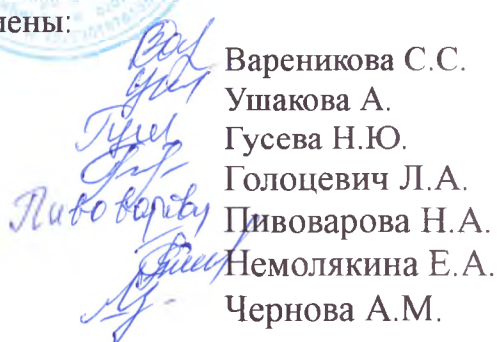 лены:
Вареникова С.С.
Ушакова А.
Гусева Н.Ю.
Голоцевич Л.А.
Пивоварова Н.А.
Немолякина Е.А.
Чернова А.М.